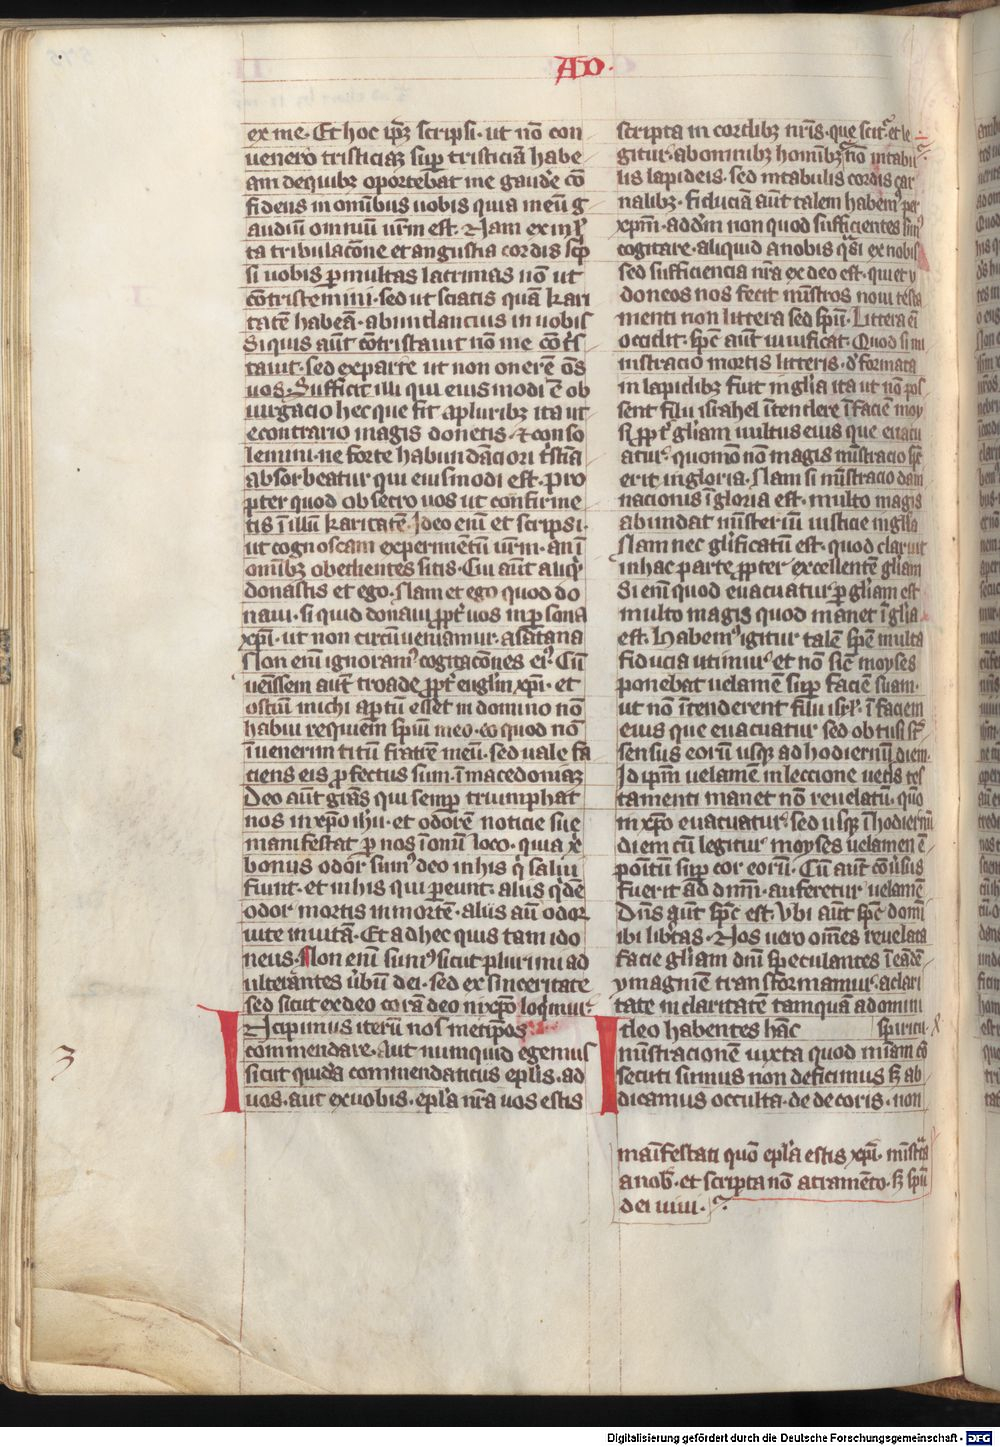 AD.
ex me. Et hoc ip̄ꝫ scripsi. ut nō con
uenero tristiciaꝫ suꝑ tristiciā habe
am de quibꝫ oportebat me gaudē cō
fidens in omībus uobis quia meū g
audiū omniū ur̄m est. Nam ex ml̄
ta tribulacōne et angustia cordis scp̄
si uobis ꝑ multas lacrimas nō ut
cōtristemini. sed ut sciatis quā kari
tatē habeā. abundancius in uobis
Siquis aūt cōtristauit nō me cōt̄s
tauit. sed ex parte ut non onerē om̄s
uos. Sufficit illi qui eiusmodi ē ob
iurgacio hec que fit a pluribꝫ ita ut
econtrario magis donetis. ⁊ conso
lemini. ne forte habundāciori t̄sticia
absorbeatur qui eiusmodi est. pro
pter quod obsecro uos ut confirme
tis ī illū karitatē. Ideo enī et scripsi.
ut cognoscam experimētū ur̄m. an ī
omībꝫ obedientes sitis. Cui aūt aliqͥd
donastis et ego. Nam et ego quod do
naui. si quid donaui ꝓpt̄ uos in ꝑsona
xp̄i. ut non circūueniamur. a satana
Non enī ignoramꝰ cogitacōnes eiꝰ. Cū
uēissem aūt troade ꝓpt̄ euglīm xp̄i. et
ostiū michi aꝑtū esset in domino nō
habui requiem sp̄ui meo. eo quod nō
īuenerim titū fratrē meū. sed uale fa
ciens eis ꝓfectus sum. ī macedoniaꝫ
Deo aūt gr̄as qui semꝑ triumphat
nos in xp̄o ih̄u. et odorē noticie sue
manifestat ꝑ nos ī omī loco. quia xp̄i
bonus odor sumꝰ deo in his qͥ salui
fiunt. et in his qui ꝑeunt. aliis qͥdē
odor mortis in mortē. aliis aūt odor
uite in uitā. Et ad hec quis tam ido
neus. Non enī sumꝰ sicut plurimi ad
ulterātes ūbū dei. sed ex sinceritate
sed sicut ex deo corā deo in xp̄o loqͥmur.
3
Incipimus iterū nosmetip̄os
commendare. Aut numquid egemus
sicut quidā commendaticiis epl̄is. ad
uos. aut ex uobis. epl̄a nr̄a uos estis
scripta in cordibꝫ nr̄is. que scit̄. et le
gitur. ab omnibꝫ homībꝫ nō in tabu
lis lapideis. sed in tabulis cordis car
nalibꝫ. fiduciā aūt talem habemꝰ per
xpm̄. ad dm̄ non quod sufficientes simꝰ
cogitare. aliquid a nobis qͣsi ex nobis
sed sufficiencia nr̄a ex deo est. qui et y
doneos nos fecit ministros noui testa
menti non littera sed sp̄u. Littera enī
occidit. sp̄c aūt uiuificat. Quod si mi
nistracio mortis litteris. dˀformata
in lapidibꝫ fuit in gl̄ia ita ut nō pos
sent filii israhel ītendere ī faciē moy
si ꝓpt̄ gl̄iam uultus eius que euacu
atur. quomō nō magis ministracio sp̄c
erit in gloria. Nam si ministracio dam
nacionis ī gloria est. multo magis
abundat ministeriū iusticie in gl̄ia
Nam nec glificatū est. quod claruit
in hac parte ꝓpter excellentē gl̄iam
Si enī quod euacuatur ꝑ gl̄iam est
multo magis quod manet ī gl̄ia
est. Habemꝰ igitur talē spē multa
fiducia utimur et nō sicē moyses
ponebat uelamē suꝑ faciē suam.
ut nō ītenderent filii isrl̄. ī faciem
eius que euacuatur sed obtusi st̄
sensus eorū usqꝫ ad hodiernū diem.
Id ip̄m uelamē in leccione uet̄is tes
tamenti manet nō reuelatū. quō
in xp̄o euacuatur. sed usqꝫ ī hodiernū
diem cū legitur moyses uelamen ē
pōitū suꝑ cor eorū. Cū aūt cōūsus
fuerit ad dnm̄. auferetur uelamē
Dn̄s aūt sp̄c est. Vbi aūt sp̄c domī
ibi lib̄tas. Nos uero om̄es reuelata
facie gl̄iam dnī speculantes ī eandē
ymaginē transformamur. a clari
tate in claritatē tamquā a domini
spiritu
Ideo habentes hāc
ministracionē iuxta quod mīam cō
secuti sumus non deficimus sꝫ ab
dicamus occulta. de decoris. non
manifestati quō epl̄a estis xp̄i. ministͣta
a nob̄. et scripta nō atramēto. sꝫ sp̄u
dei uiui.
Digitalisierung gefördert durch die Deutsche Forschungsgemeinschaft - DFG